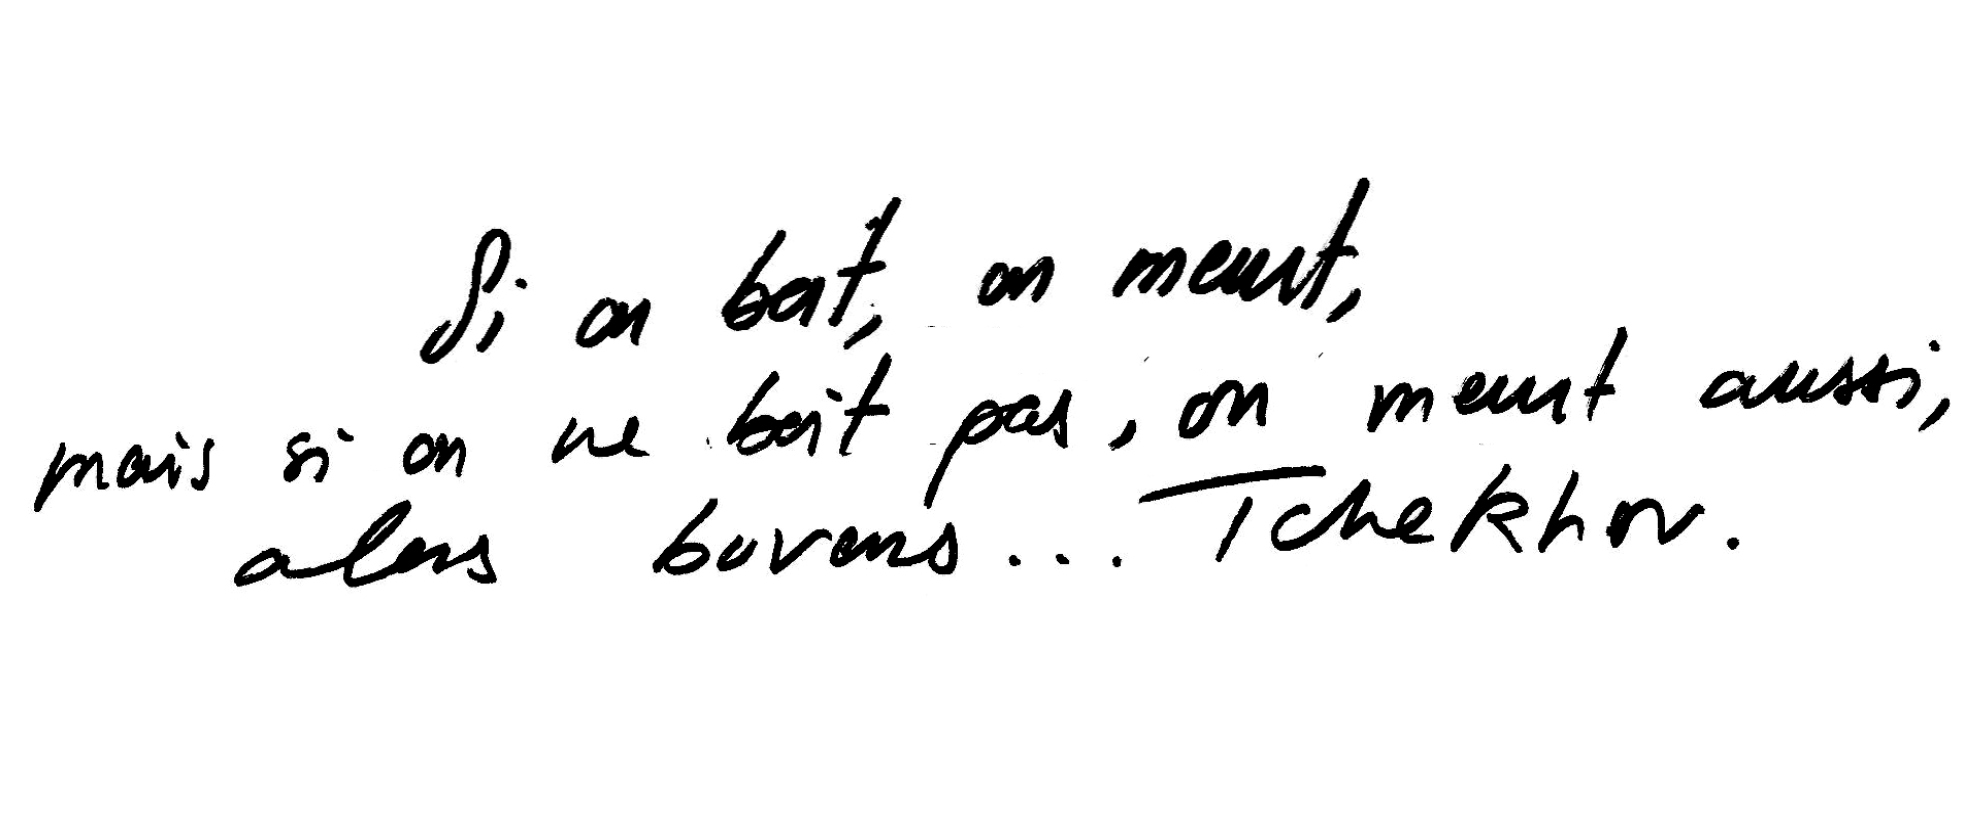 Si on boit, on meurt,
mais si on ne boit pas, on meurt aussi,
alors buvons... Tchekhov.